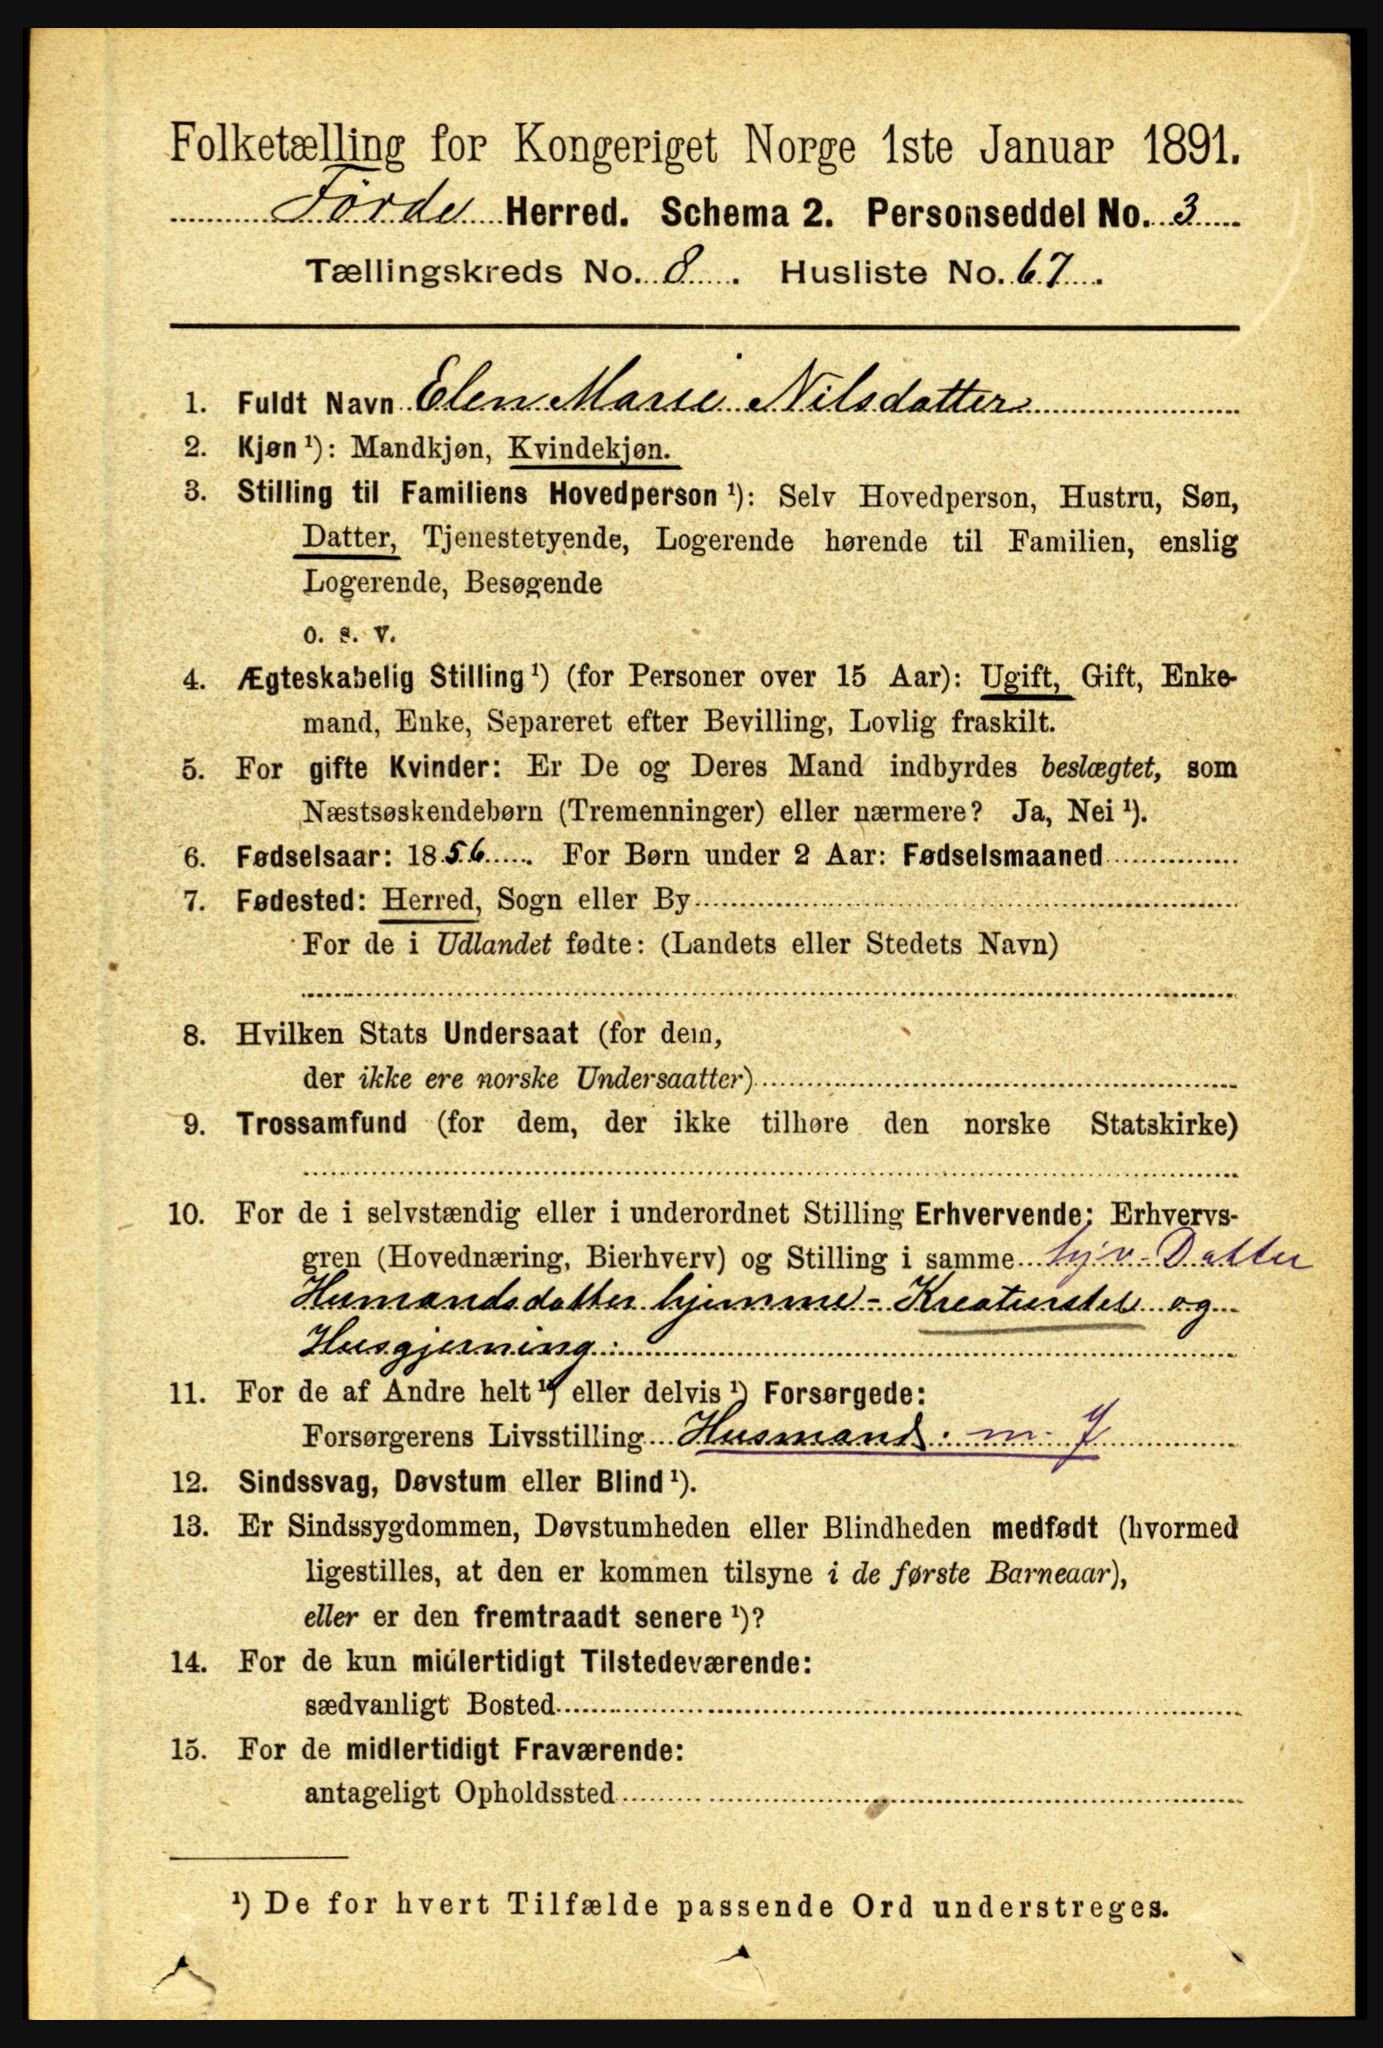 Folketælling for Kongeriget Norge 1ste Januar 1891.
Førde Herred. Schema 2. Personseddel No. 3
Tællingskreds No. 8. Husliste No. 67.
1. Fuldt Navn Elen Marie Nilsdatter
2. Kjøn ¹): Mandkjøn, Kvindekjøn.
3. Stilling til Familiens Hovedperson ¹): Selv Hovedperson, Hustru, Søn,
Datter, Tjenestetyende, Logerende hørende til Familien, enslig
Logerende, Besøgende
o. s. v.
4. Ægteskabelig Stilling ¹) (for Personer over 15 Aar): Ugift, Gift, Enke-
mand, Enke, Separeret efter Bevilling, Lovlig fraskilt.
5. For gifte Kvinder: Er De og Deres Mand indbyrdes beslægtet, som
Næstsøskendebørn (Tremenninger) eller nærmere? Ja, Nei ¹).
6. Fødselsaar: 1856. For Børn under 2 Aar: Fødselsmaaned
7. Fødested: Herred, Sogn eller By
For de i Udlandet fødte: (Landets eller Stedets Navn)
8. Hvilken Stats Undersaat (for dem,
der ikke ere norske Undersaatter)
9. Trossamfund (for dem, der ikke tilhøre den norske Statskirke)
10. For de i selvstændig eller i underordnet Stilling Erhvervende: Erhvervs-
gren (Hovednæring, Bierhverv) og Stilling i samme hjv. Datter
Husmandsdatter hjemme - Kreaturstel og
Husgjerning:
11. For de af Andre helt ¹) eller delvis ¹) Forsørgede:
Forsørgerens Livsstilling Husmand: m. J
12. Sindssvag, Døvstum eller Blind ¹).
13. Er Sindssygdommen, Døvstumheden eller Blindheden medfødt (hvormed
ligestilles, at den er kommen tilsyne i de første Barneaar),
eller er den fremtraadt senere ¹)?
14. For de kun midlertidigt Tilstedeværende:
sædvanligt Bosted
15. For de midlertidigt Fraværende:
antageligt Opholdssted
¹) De for hvert Tilfælde passende Ord understreges.